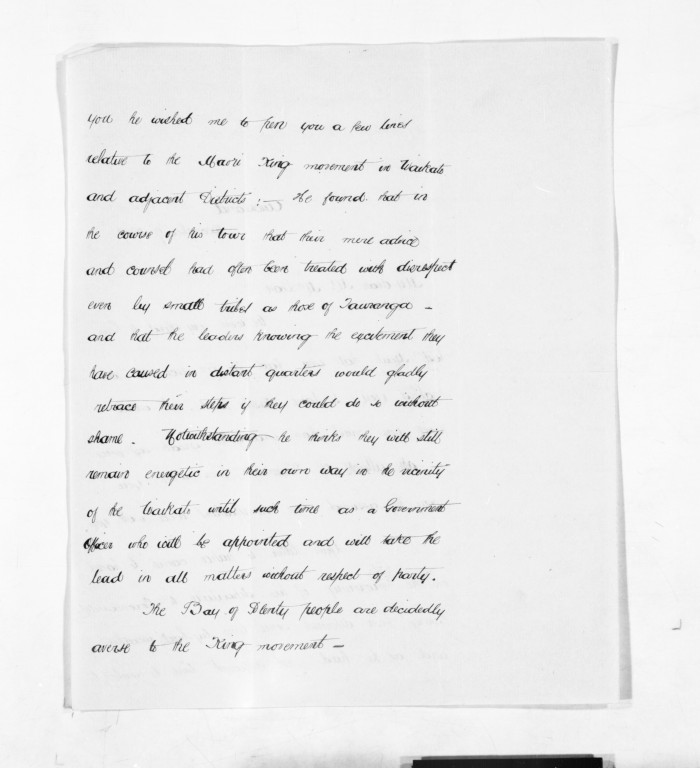 you he wished me to pen you a few lines
relative to the Maori King movement in Waikato
and adjacent Districts :— He found that in
the course of his tour that their mere advice
and counsel had often been treated with disrespect
even by small tribes as those of Tauranga —
and that the leaders knowing the excitement they
have caused in distant quarters would gladly
retrace their steps if they could do so without
shame. Notwithstanding he thinks they will still
remain energetic in their own way in the vicinity
of the Waikato until such time as a Government
Officer who will be appointed and will take the
lead in all matters without respect of party.
The Bay of Plenty people are decidedly
averse to the King movement —